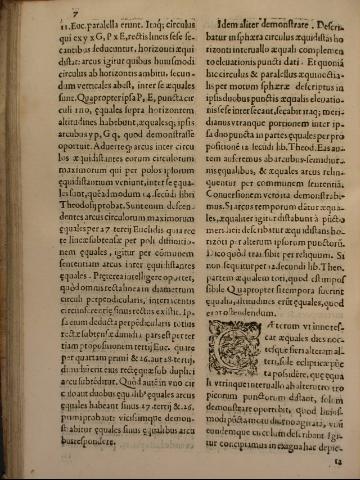 11. Euc. parallela erunt. Itaq; circulus
qui ex y x G, P x E, rectis lineis sese se-
cantibus deducuntur, horizonti æqui
distat: arcus igitur quibus huiusmodi
circulus ab horizontis ambitu, secun-
dum verticales abest, inter se æquales
sunt. Quapropter ipsa P, E, puncta cir
culi ino, æquales supra horizontem
altitudines habebunt, æquales q; ipsis
arcubus y p, G q, quod demonstrasse
oportuit. Aduerte q; arcus inter circu
los æquidistantes eorum circulorum
maximorum qui per polos ipsorum
equidistantium veniunt, inter se equa-
les sunt, quéadmodum 14. secúdi libri
Theodosij probat. Sunt enim descen-
dentes arcus circulorum maximorum
equales per 27 tertij Euclidis quia rec
te lineæ subtensæ per poli diffinitio-
nem equales, igitur per cómunem
sententiam arcus inter equidistantes
equales. Preterea intelligere oportet,
quòd omnis recta linea in diametrum
circuli perpendicularis, interiacentis
circunferentię sinus rectus existit. Ip-
sa enim deducta perpédicularis totius
rectæ subtensæ dimidiū pars est per ter
tiam propositionem tertij Euc. quare
per quartam primi & 26. aut 28. tertij,
dimidium eius rectæque sub duplici
arcu subtéditur. Quòd autē in vno cir
culo aut duobus equalibº equales arcus
equales habeant sinus 27 tertij & 26.
primi probant: vicissimque demon-
strabit equales sinus equalibus arcubus
respondere.
Idem aliter demonstrare. Descri-
batur in sphæra circulus æquidistás ho
rizonti interuallo æquali complemen
to eleuationis puncti dati. Et quoniā
hic circulus & parallelus æquinoctia-
lis per motum sphæræ descriptus in
ipsis duobus punctis æqualis eleuatio-
nis sese intersecant, secabit itaq; meri-
dianus vtranque portionem inter ip-
sa duo puncta in partes equales per pro
positione 12. secúdi lib. Theod. Eas au-
tem auferemus ab arcubus semidiur-
nis equalibus, & equales arcus relin-
quentur per communem sententiā.
Conuersionem verò ita demonstrabi-
mus. Si æquo temporum datur æqua-
les, æqualiter igitur distabunt à púcto
meridiei: describatur æquidistans ho-
rizóti per alterum ipsorum punctorū.
Dico quòd transibit per reliquum. Si
non sequitur per 12. secundi lib. Theo.
partem æqualem toti, quod est impos
sibile. Quapropter si tempora fuerint
equalia, altitudines erūt equales, quod
erat ostendendum.
Cæterum vt innotes-
cat æquales dies noc-
tesque fieri alteram al-
teri, sole eclipticæ pūc
ta possidere, quæ equa
li vtrinque interuallo ab alterutro tro
picorum punctorum distant, solum
demonstrare oportebit, quod huius-
modi púcta motu diurno agitata, vnū
eundemque circulum describant. Igi-
tur conspiciamus in exigua hac depic-